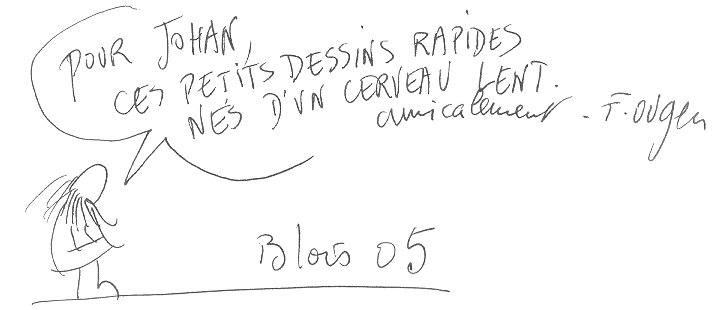 POUR JOHAN,
CES PETITS DESSINS RAPIDES
NÉS D'UN CERVEAU LENT.
amicalement - T. Ougen
Blois 05